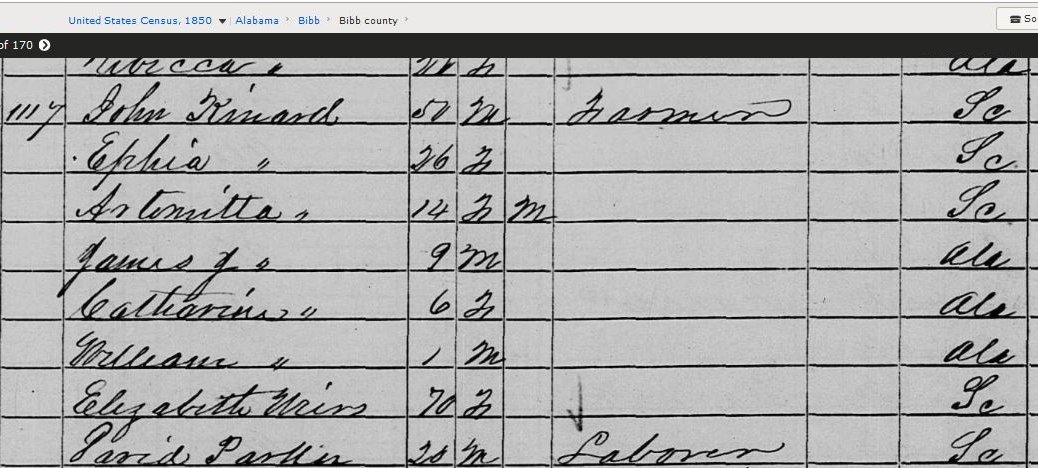 United States Census, 1850 ▼ Alabama › Bibb › Bibb county ›
So
of 170
Ribecca " F Ala
1117 John Kinard 50 M Farmer Sc
Ephia " 26 F Sc
Artomitta " 14 F M Sc
James J " 9 M Ala
Catharine " 6 F Ala
William " 1 M Ala
Elizabeth 70 F Sc
David Parker 28 M Laborer Sc